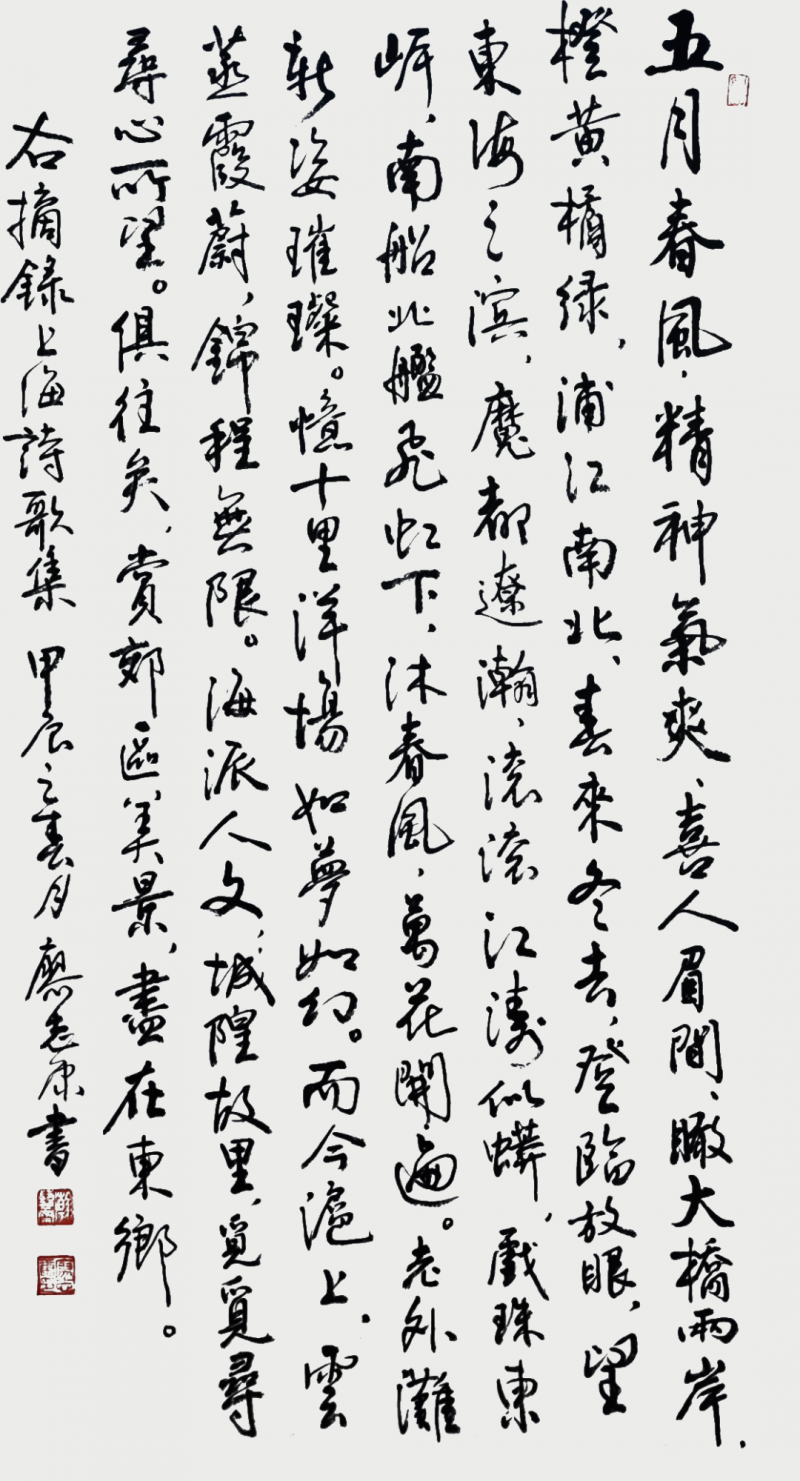 五月春風、精神氣爽、喜人眉間、瞰大橋兩岸，
橙黄橘绿，浦江南北、春來冬去，登臨放眼，望
東海之滨，魔都遼瀚、滚滚江濤似蟒，戲珠東
岸、南船北艦飛虹下、沐春風，萬花開遍。老外灘
新姿璀璨。憶十里洋場如夢如幻。而今滬上，雲
蒸霞蔚，錦程無限。海派人文，城隍故里，覓覓尋
尋心所望。俱往矣，賞郊區美景，盡在東鄉。
右摘錄上海詩歌集 甲辰之春月 應志康書